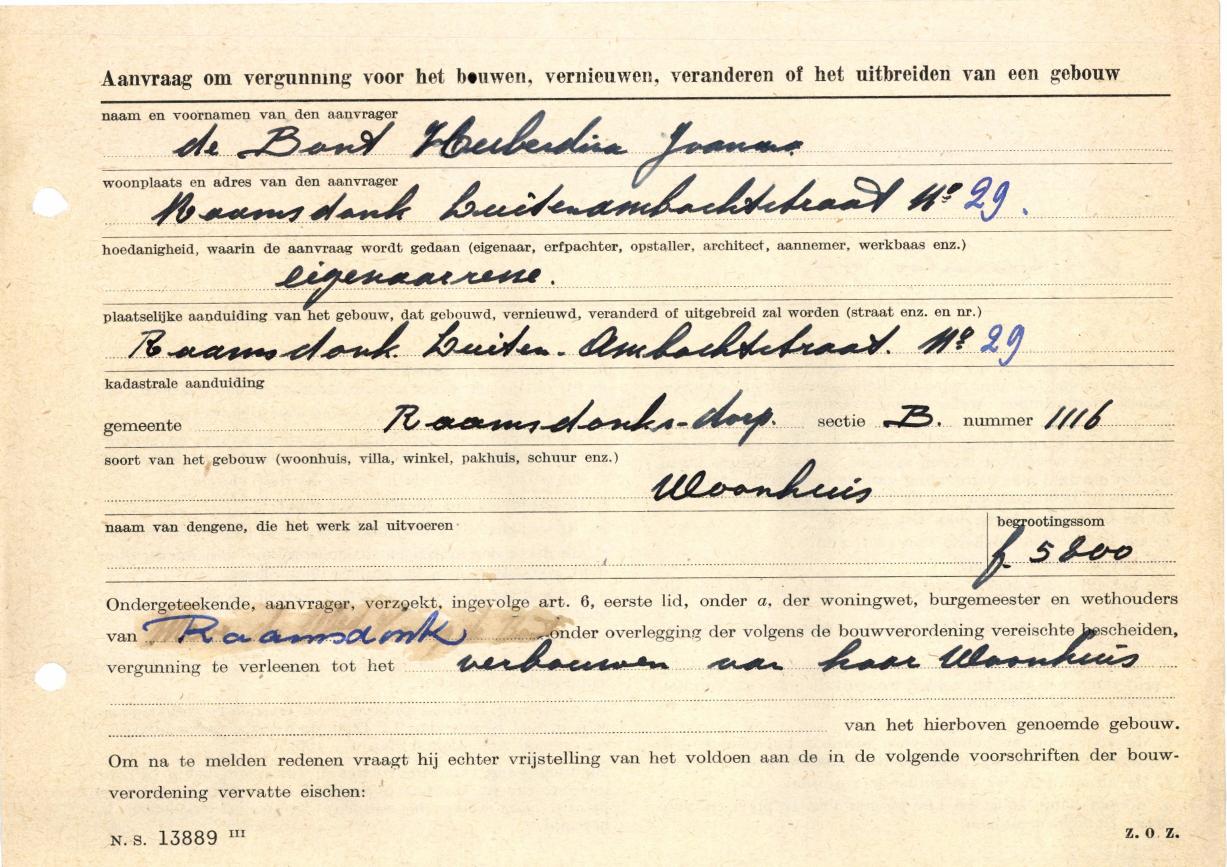 Aanvraag om vergunning voor het bouwen, vernieuwen, veranderen of het uitbreiden van een gebouw
naam en voornamen van den aanvrager
de Bont Huberdina Joanna
woonplaats en adres van den aanvrager
Raamsdonk Luitenambachtstraat No 29.
hoedanigheid, waarin de aanvraag wordt gedaan (eigenaar, erfpachter, opstaller, architect, aannemer, werkbaas enz.)
eigenaarresse.
plaatselijke aanduiding van het gebouw, dat gebouwd, vernieuwd, veranderd of uitgebreid zal worden (straat enz. en nr.)
Raamsdonk. Luiten-Ambachtstraat. No 29
kadastrale aanduiding
gemeente Raamsdonks-dorp. sectie B. nummer 1116
soort van het gebouw (woonhuis, villa, winkel, pakhuis, schuur enz.)
Woonhuis
naam van dengene, die het werk zal uitvoeren
begrootingssom
f 5800
Ondergeteekende, aanvrager, verzoekt, ingevolge art. 6, eerste lid, onder a, der woningwet, burgemeester en wethouders
van Raamsdonk onder overlegging der volgens de bouwverordening vereischte bescheiden,
vergunning te verleenen tot het verbouwen van haar Woonhuis
van het hierboven genoemde gebouw.
Om na te melden redenen vraagt hij echter vrijstelling van het voldoen aan de in de volgende voorschriften der bouw-
verordening vervatte eischen:
N. S. 13889 III
Z. O. Z.